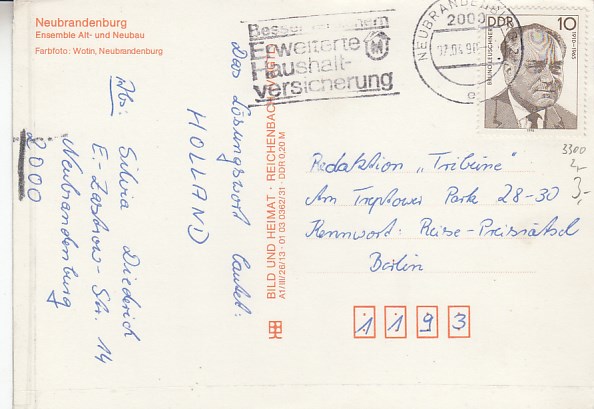 Neubrandenburg
Ensemble Alt- und Neubau
Farbfoto: Wotin, Neubrandenburg
Das Lösungswort lautet:
HOLLAND
Abs: Silvia Diederich
E.-Zastrow-Str. 14
Neubrandenburg
2000
BILD UND HEIMAT · REICHENBACH
A1/III/26/13 - 01 03 0362/31 · DDR 0,20 M
Erweiterte
Haushalt-
versicherung
NEUBRANDENBURG
2000
DDR 10
Redaktion „Tribüne"
Am Treptower Park 28-30
Kennwort: Reise-Preisrätsel
Berlin
1193
3300
3,-